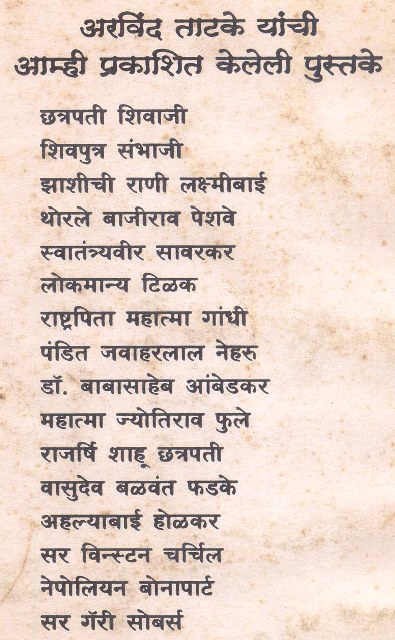 अरविंद ताटके यांची
आम्ही प्रकाशित केलेली पुस्तके
छत्रपती शिवाजी
शिवपुत्र संभाजी
झाशीची राणी लक्ष्मीबाई
थोरले बाजीराव पेशवे
स्वातंत्र्यवीर सावरकर
लोकमान्य टिळक
राष्ट्रपिता महात्मा गांधी
पंडित जवाहरलाल नेहरु
डॉ. बाबासाहेब आंबेडकर
महात्मा ज्योतिराव फुले
राजर्षि शाहू छत्रपती
वासुदेव बळवंत फडके
अहल्याबाई होळकर
सर विन्स्टन चर्चिल
नेपोलियन बोनापार्ट
सर गॅरी सोबर्स